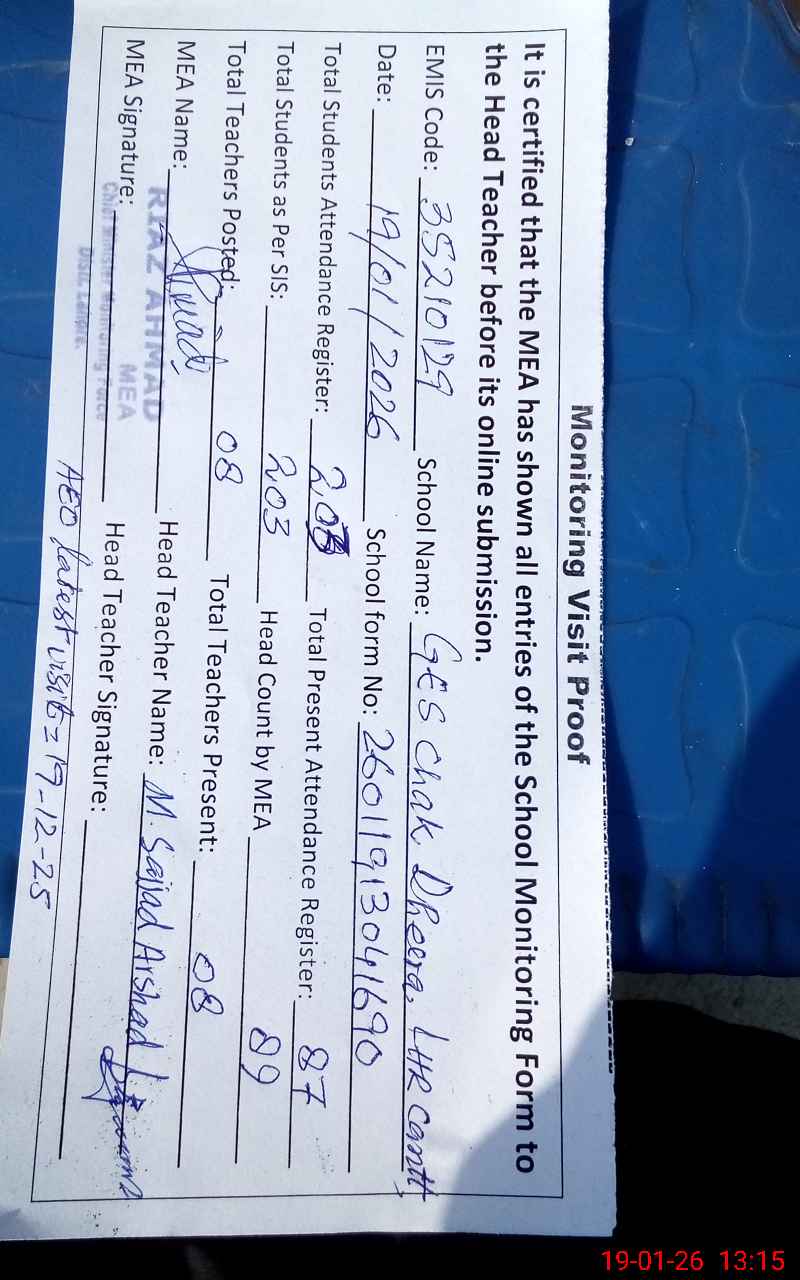 Monitoring Visit Proof
It is certified that the MEA has shown all entries of the School Monitoring Form to
the Head Teacher before its online submission.
EMIS Code: 35210129 School Name: GES Chak Dheera, LHR Cantt,
Date: 19/01/2026 School form No: 26011913041690
Total Students Attendance Register: 203 Total Present Attendance Register: 87
Total Students as Per SIS: 203 Head Count by MEA 89
Total Teachers Posted: 08 Total Teachers Present: 08
MEA Name: Head Teacher Name: M. Sajjad Arshad
RIAZ AHMAD
MEA
MEA Signature: Head Teacher Signature:
Chief Minister Monitoring Force
Distt. Lahore.
AEO latest visit = 19-12-25
19-01-26 13:15